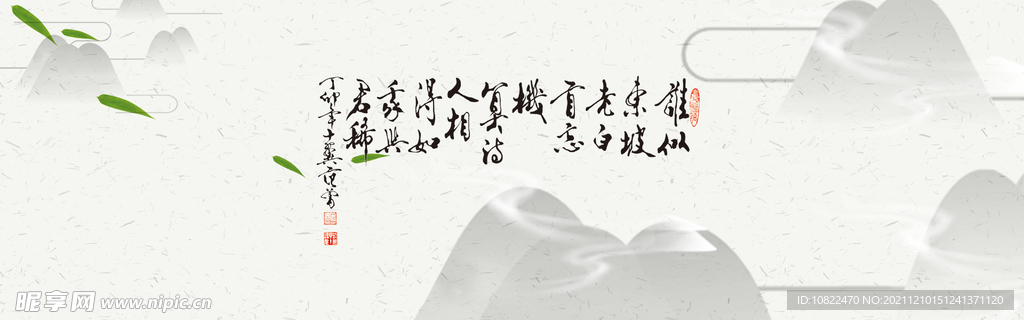 誰似
東坡
老白
首忘
機
算詩
人相
得如
我與
君稀
丁卯年十翼范曾
昵享网 www.nipic.cn
ID:10822470 NO:20211210151241371120